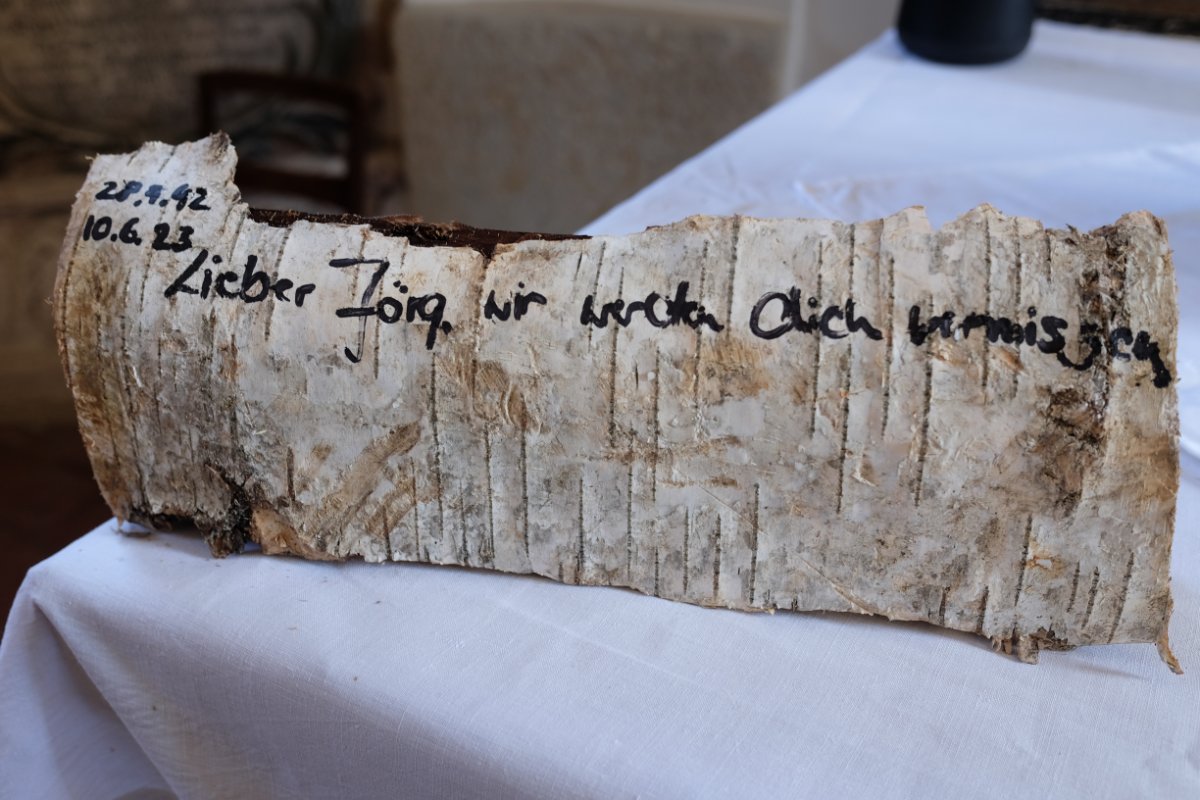 28.9.42
10.6.23
Lieber Jörg, wir werden dich vermissen